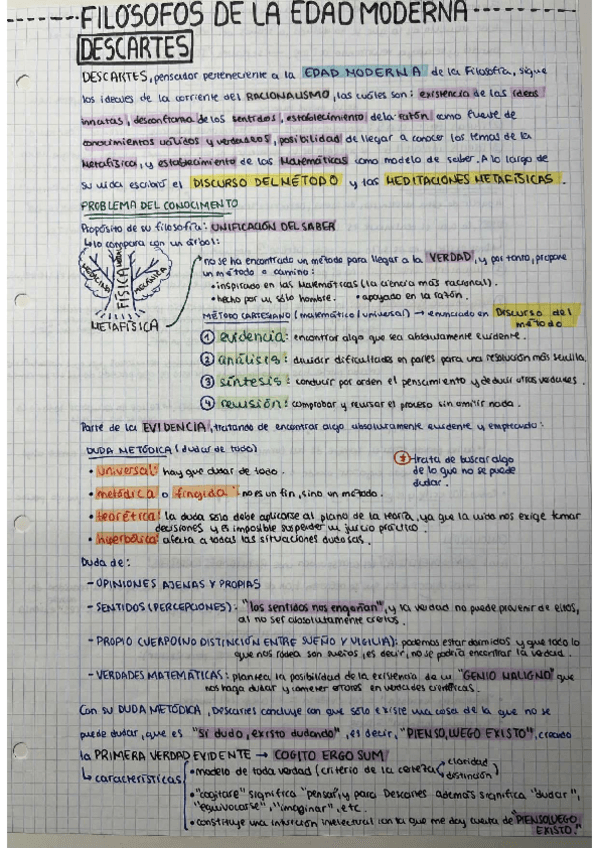 FILÓSOFOS DE LA EDAD MODERNA
DESCARTES
DESCARTES, pensador perteneciente a la EDAD MODERNA de la Filosofía, sigue
los ideales de la corriente del RACIONALISMO, las cuáles son: existencia de las ideas
innatas, desconfianza de los sentidos, establecimiento de la razón como fuente de
conocimientos válidos y verdaderos, posibilidad de llegar a conocer los temas de la
Metafísica, y establecimiento de las Matemáticas como modelo de saber. A lo largo de
su vida escribió el DISCURSO DEL MÉTODO y las MEDITACIONES METAFÍSICAS.
PROBLEMA DEL CONOCIMIENTO
Propósito de su filosofía: UNIFICACIÓN DEL SABER
lo compara con un árbol:
MEDICINA
FÍSICA
MECÁNICA
METAFÍSICA
no se ha encontrado un método para llegar a la VERDAD, y por tanto, propone
un método o camino:
• inspirado en las Matemáticas (la ciencia más racional).
• hecho por un sólo hombre. • apoyado en la razón.
MÉTODO CARTESIANO (matemático/universal) → enunciado en Discurso del
método
1 evidencia: encontrar algo que sea absolutamente evidente.
2 análisis: dividir dificultades en partes para una resolución más sencilla.
3 síntesis: conducir por orden el pensamiento y deducir otras verdades.
4 revisión: comprobar y revisar el proceso sin omitir nada.
Parte de la EVIDENCIA, tratando de encontrar algo absolutamente evidente y empleando:
DUDA METÓDICA (dudar de todo)
* trata de buscar algo
de lo que no se puede
dudar.
• universal: hay que dudar de todo.
• metódica o fingida: no es un fin, sino un método.
• teorética: la duda solo debe aplicarse al plano de la teoría, ya que la vida nos exige tomar
decisiones y es imposible suspender un juicio práctico.
• hiperbólica: afecta a todas las situaciones dudosas.
Duda de:
- OPINIONES AJENAS Y PROPIAS
- SENTIDOS (PERCEPCIONES): "los sentidos nos engañan", y la verdad no puede provenir de ellos,
al no ser absolutamente ciertos.
- PROPIO CUERPO (NO DISTINCIÓN ENTRE SUEÑO Y VIGILIA): podemos estar dormidos y que todo lo
que nos rodea son sueños, es decir, no se podría encontrar la verdad.
- VERDADES MATEMÁTICAS: plantea la posibilidad de la existencia de un "GENIO MALIGNO" que
nos haga dudar y cometer errores en verdades científicas.
Con su DUDA METÓDICA, Descartes concluye con que sólo existe una cosa de la que no se
puede dudar, que es "Si dudo, existo dudando", es decir, "PIENSO, LUEGO EXISTO", creando
la PRIMERA VERDAD EVIDENTE → COGITO ERGO SUM
características
• modelo de toda verdad (criterio de la certeza)
claridad
distinción
• "cogitare" significa "pensar", y para Descartes además significa "dudar",
"equivocarse", "imaginar", etc.
• constituye una intuición intelectual con la que me doy cuenta de "PIENSO, LUEGO
EXISTO."